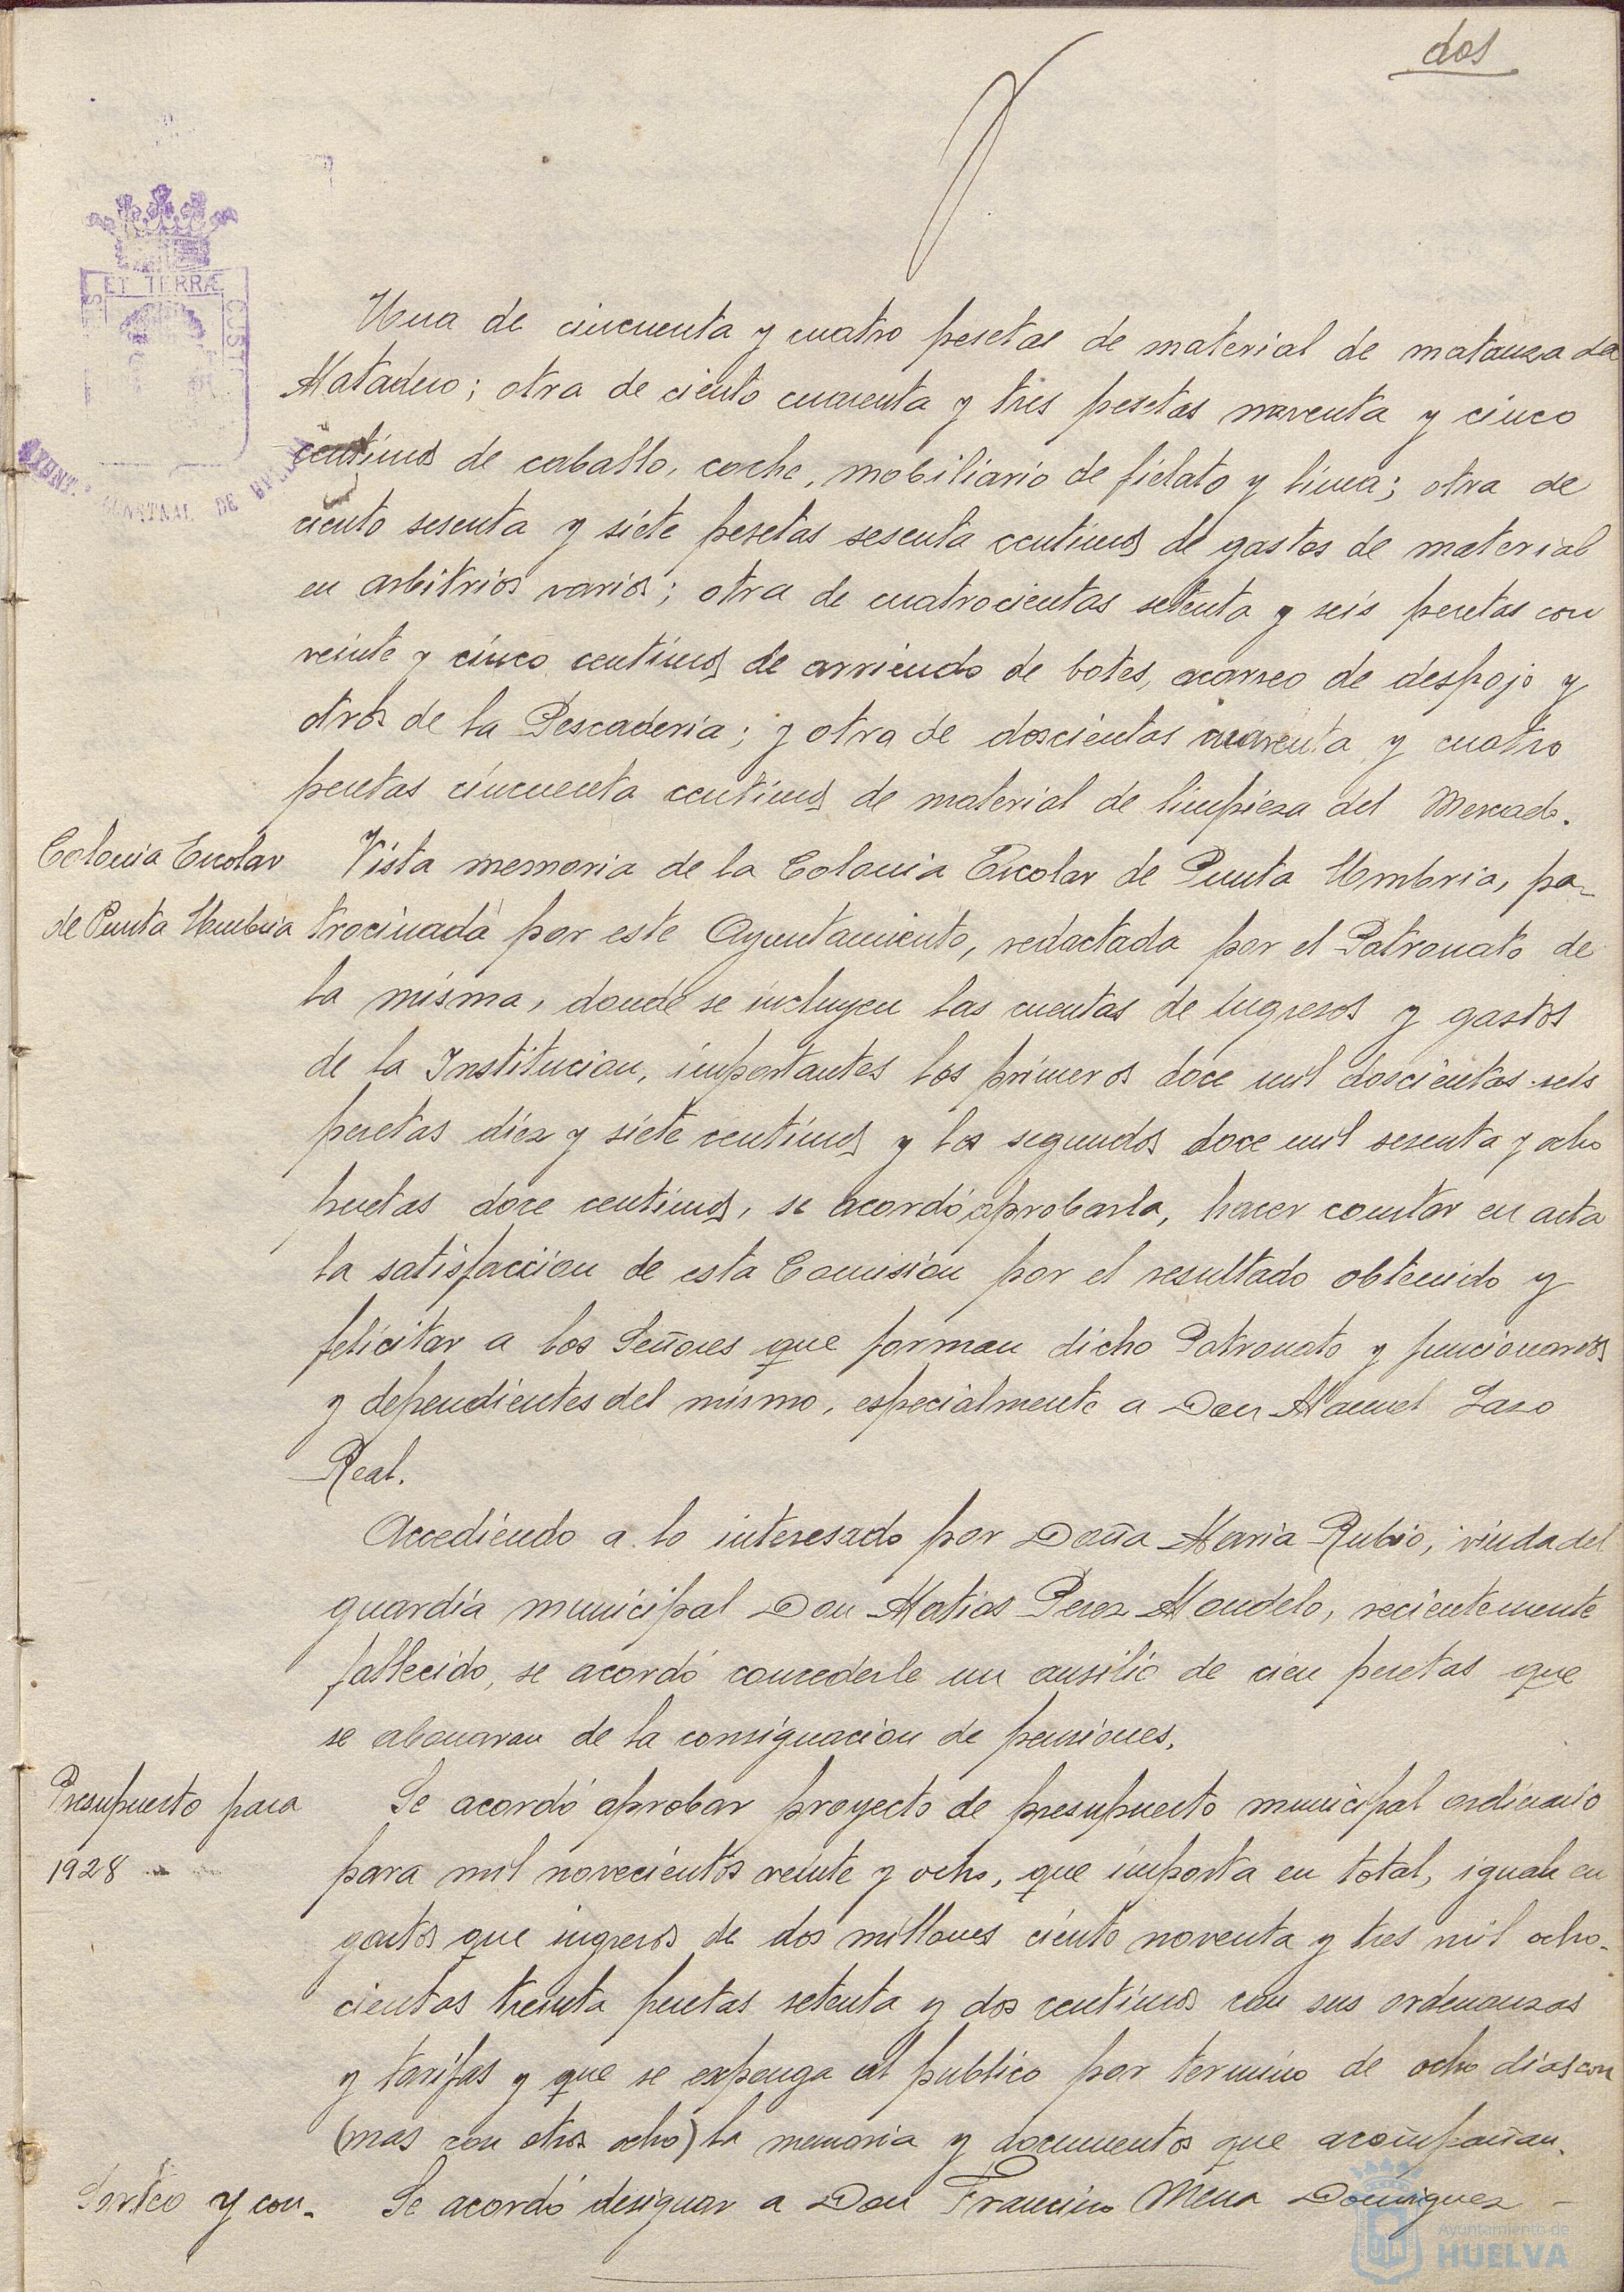 dos
ET TERRÆ
CUST
Una de cincuenta y cuatro pesetas de material de matanza da
Matadero; otra de ciento cuarenta y tres pesetas noventa y cinco
centimos de caballo, coche, mobiliario de fielato y linea; otra de
ciento sesenta y siete pesetas sesenta centimos de gastos de material
en arbitrios varios; otra de cuatrocientas setenta y seis pesetas con
veinte y cinco centimos de arriendo de botes, acarreo de despojo y
otros de la Pescaderia; y otra de doscientas cuarenta y cuatro
pesetas cincuenta centimos de material de limpieza del Mercado.
Colonia Escolar
de Punta Umbria
Vista memoria de la Colonia Escolar de Punta Umbria, pa-
trocinada por este Ayuntamiento, redactada por el Patronato de
la misma, donde se incluyen las cuentas de ingresos y gastos
de la Institucion, importantes los primeros doce mil doscientas seis
pesetas diez y siete centimos y los segundos doce mil sesenta y ocho
pesetas doce centimos, se acordó aprobarla, hacer constar en acta
la satisfaccion de esta Comision por el resultado obtenido y
felicitar a los Señores que forman dicho Patronato y funcionarios
y dependientes del mismo, especialmente a Don Manuel Lazo
Real.
Accediendo a lo interesado por Doña Maria Rubio, viuda del
guardia municipal Don Matias Perez Mondelo, recientemente
fallecido, se acordó concederle un ausilio de cien pesetas que
se abonaran de la consignacion de pensiones.
Presupuesto para
1928
Se acordó aprobar proyecto de presupuesto municipal ordinario
para mil novecientos veinte y ocho, que importa en total, igual en
gastos que ingresos de dos millones ciento noventa y tres mil ocho-
cientas treinta pesetas setenta y dos centimos con sus ordenanzas
y tarifas y que se exponga al publico por termino de ocho dias con
(mas con otros ocho) la memoria y documentos que acompañan.
Sorteo y con-
Se acordó designar a Don Francisco Mena Dominguez -
Ayuntamiento de
HUELVA